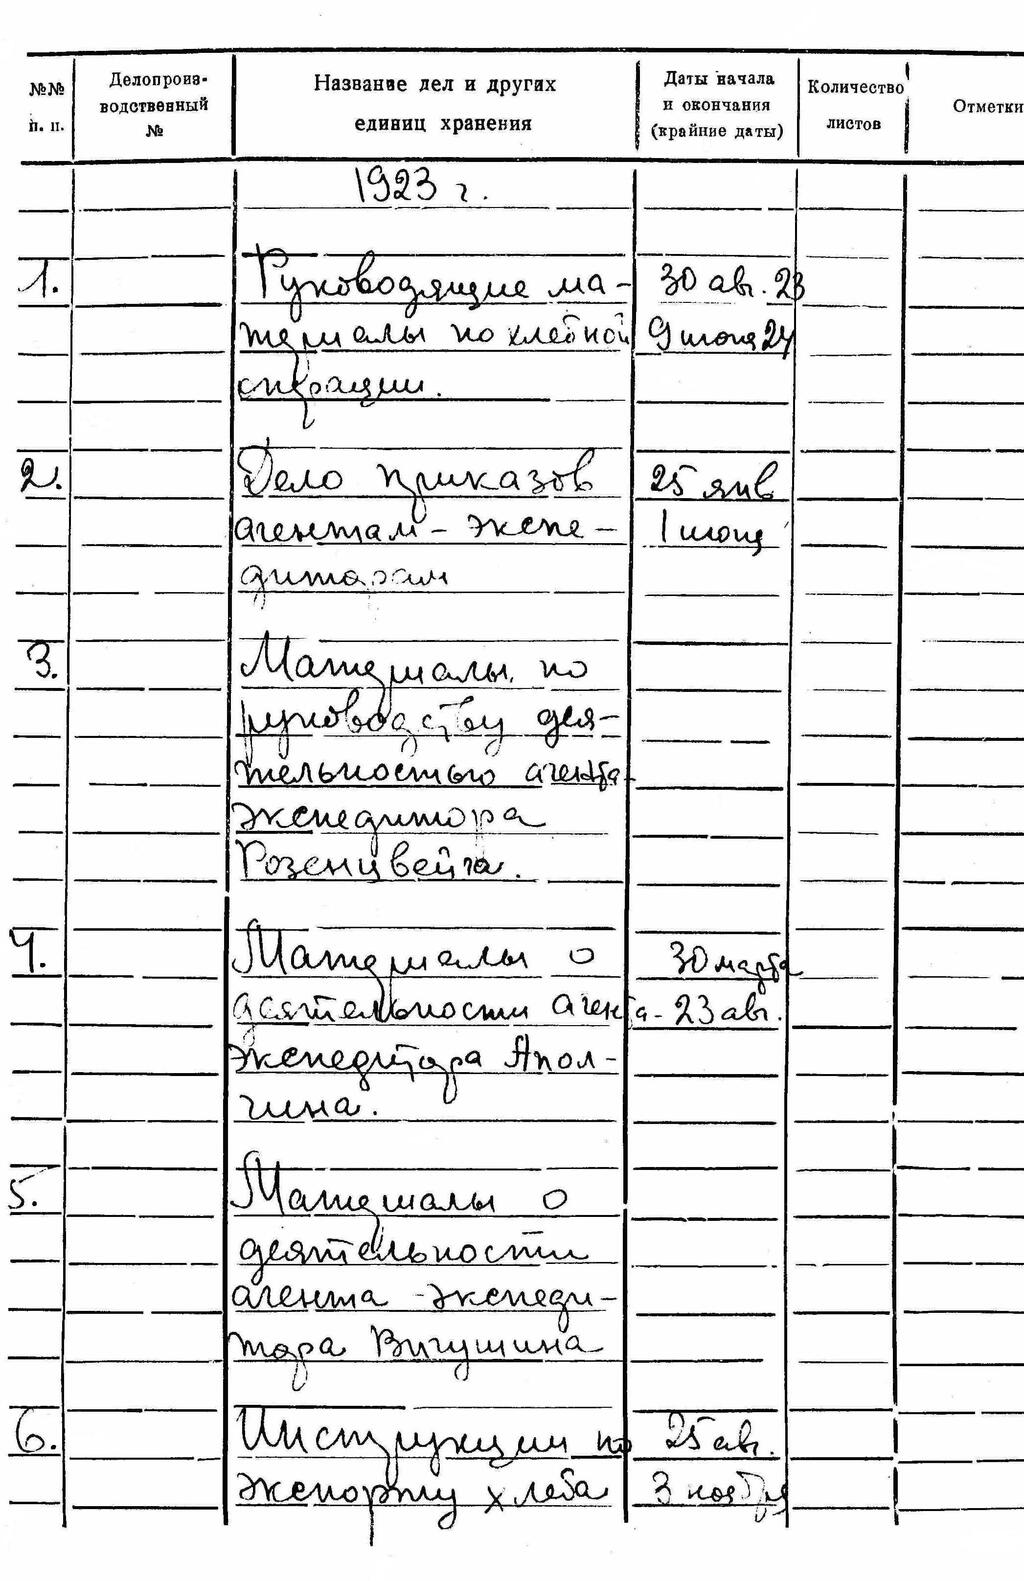 №№ п. п.
Делопроиз-
водственный
№
Название дел и других
единиц хранения
Даты начала
и окончания
(крайние даты)
Количество
листов
Отметки
1923 г.
1. Руководящие ма- 30 авг. 23
териалы по хлебной 9 июня 24
операции.
2. Дело приказов 25 янв
агентам - экспе- 1 июня
диторам
3. Материалы по
руководству дея-
тельностью агента-
экспедитора
Розенцвейга.
4. Материалы о 30 марта
деятельности агента- 23 авг.
экспедитора Апол-
чина.
5. Материалы о
деятельности
агента - экспеди-
тора Вигушина
6. Инструкции по 25 авг.
экспорту хлеба 3 ноября